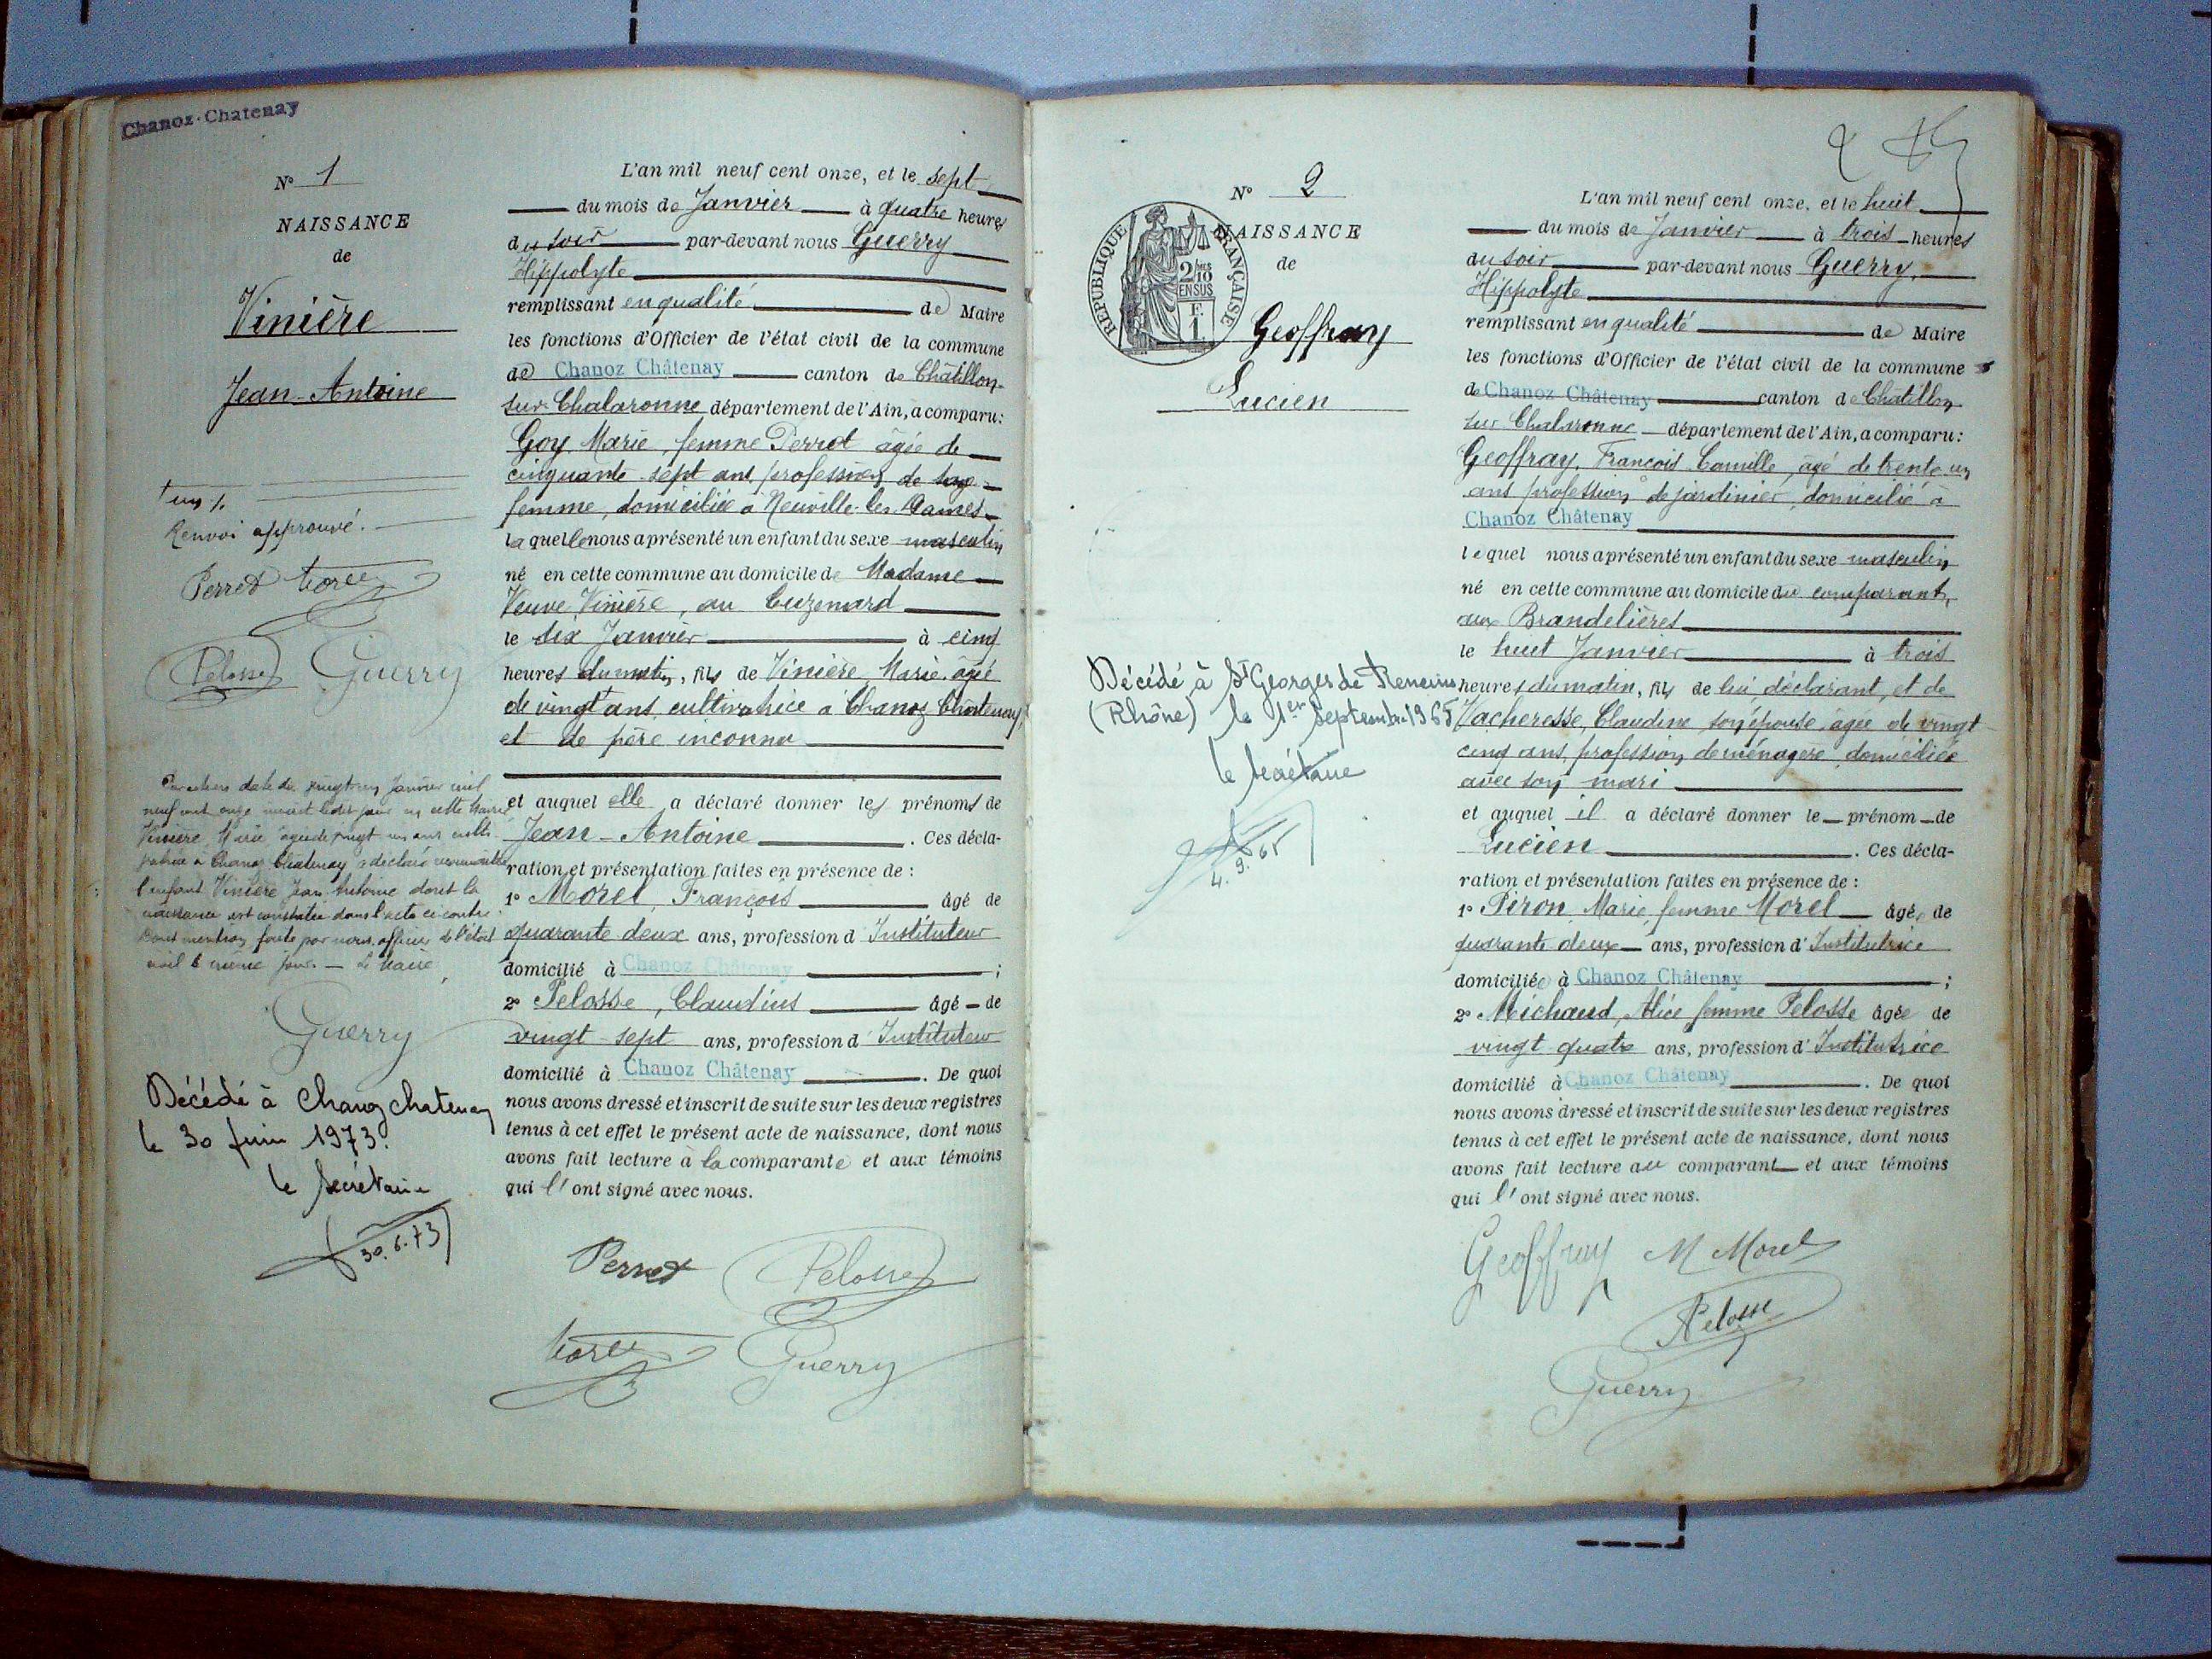 Chanoz-Chatenay
N° 1
NAISSANCE
de
Vinière
Jean-Antoine
un /.
Renvoi approuvé.
Perret Morel
Pelosse Guerry
Par acte en date du vingt un Janvier mil
neuf cent onze inscrit le dit jour en cette Mairie
Vinière Marie âgée de vingt un ans culti-
vatrice à Chanoz Chatenay a déclaré reconnaître
l'enfant Vinière Jean-Antoine dont la
naissance est constatée dans l'acte ci contre.
Dont mention faite par nous, officier de l'état
civil le même jour. — Le Maire,
Guerry
Décédé à Chanoz chatenay
le 30 Juin 1973.
le secrétaire
30.6.73
L'an mil neuf cent onze, et le sept
du mois de Janvier à quatre heures
du soir par-devant nous Guerry
Hippolyte
remplissant en qualité de Maire
les fonctions d'Officier de l'état civil de la commune
de Chanoz Châtenay canton de Châtillon-
sur-Chalaronne département de l'Ain, a comparu:
Goy, Marie, femme Perrot âgée de
cinquante-sept ans, profession de sage-
femme, domiciliée à Neuville-les-Dames
laquelle nous a présenté un enfant du sexe masculin
né en cette commune au domicile de Madame
Veuve Vinière, au Cuzenard
le six Janvier à cinq
heures du matin, fils de Vinière, Marie, âgé
de vingt ans, cultivatrice à Chanoz Châtenay
et de père inconnu
et auquel elle a déclaré donner les prénoms de
Jean-Antoine. Ces décla-
ration et présentation faites en présence de :
1° Morel, François âgé de
quarante deux ans, profession d'Instituteur
domicilié à Chanoz Châtenay ;
2° Pelosse, Claudius âgé de
vingt-sept ans, profession d'Instituteur
domicilié à Chanoz Châtenay. De quoi
nous avons dressé et inscrit de suite sur les deux registres
tenus à cet effet le présent acte de naissance, dont nous
avons fait lecture à la comparante et aux témoins
qui l'ont signé avec nous.
Perret Pelosse
Morel Guerry
N° 2
NAISSANCE
de
RÉPUBLIQUE FRANÇAISE
2/10
EN SUS
F.
1
Geoffray
Lucien
Décédé à St Georges de Reneins
(Rhône) le 1er septembre 1965
le secrétaire
4.9.65
2
L'an mil neuf cent onze, et le huit
du mois de Janvier à trois heures
du soir par-devant nous Guerry,
Hippolyte
remplissant en qualité de Maire
les fonctions d'Officier de l'état civil de la commune
de Chanoz Châtenay canton de Châtillon
sur Chalaronne département de l'Ain, a comparu:
Geoffray, François Camille, âgé de trente un
ans profession de jardinier, domicilié à
Chanoz Châtenay
lequel nous a présenté un enfant du sexe masculin
né en cette commune au domicile du comparant,
aux Brandelières
le huit Janvier à trois
heures du matin, fils de lui déclarant, et de
Vacheresse, Claudine son épouse, âgée de vingt
cinq ans, profession de ménagère, domiciliée
avec son mari
et auquel il a déclaré donner le prénom de
Lucien. Ces décla-
ration et présentation faites en présence de :
1° Piron, Marie, femme Morel âgée de
quarante deux ans, profession d'Institutrice
domiciliée à Chanoz Châtenay ;
2° Michaud, Alice femme Pelosse âgée de
vingt quatre ans, profession d'Institutrice
domicilié à Chanoz Châtenay. De quoi
nous avons dressé et inscrit de suite sur les deux registres
tenus à cet effet le présent acte de naissance, dont nous
avons fait lecture au comparant et aux témoins
qui l'ont signé avec nous.
Geoffray M Morel
A Pelosse
Guerry